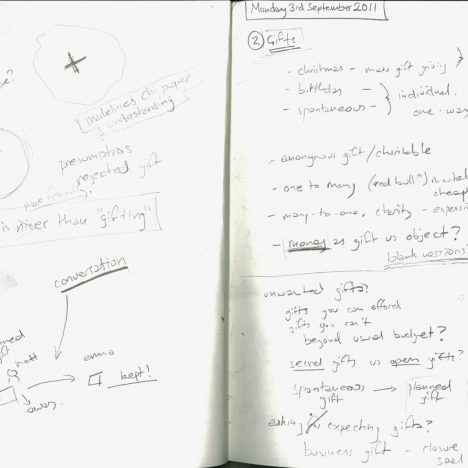 madelines chi paper
understanding
presumptios
rejected gift
is nicer than "gifting"
conversation
matt
emma
kept!
Monday 3rd September 2011
② Gifts
- christmas - mass gift giving
- birthday
- spontaneous - individual.
one-way
- anonymous gift / charitable
- one to many (red bull?)
cheap
- many-to-one, charity - expensi
- money as gift vs object?
blank versions
unwanted gifts?
gifts you can afford
gifts you can't
beyond usual budget?
secret gifts vs open gifts?
spontaneous → planned
gift gift
asking / expecting gifts?
business gift - closure
seal